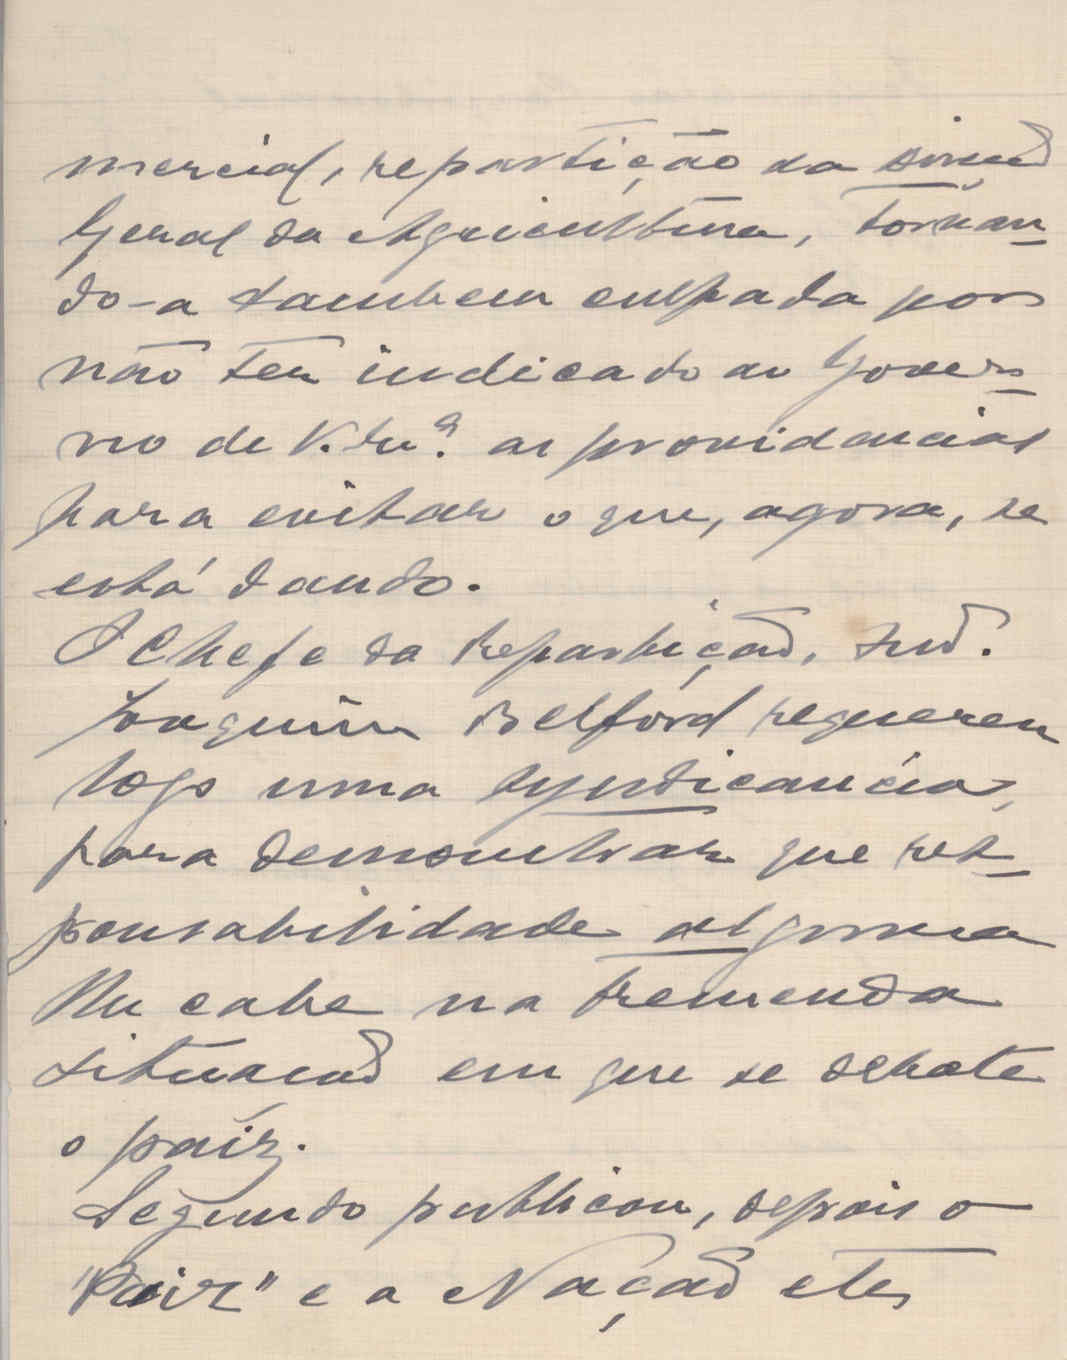 mercial, repartição da Direcção
Geral da Agricultura, tornan-
do-a tambem culpada por
não ter indicado ao Gover-
no de V. Ex.ª as providencias
para evitar o que, agora, se
está dando.
O Chefe da Repartição, Snr.
Joaquim Belford requereu
logo uma syndicancia,
para demonstrar que res-
ponsabilidade alguma
lhe cabe na tremenda
situacão em que se debate
o paíz.
Segundo publicou, depois o
"Paiz" e a Nação etc,